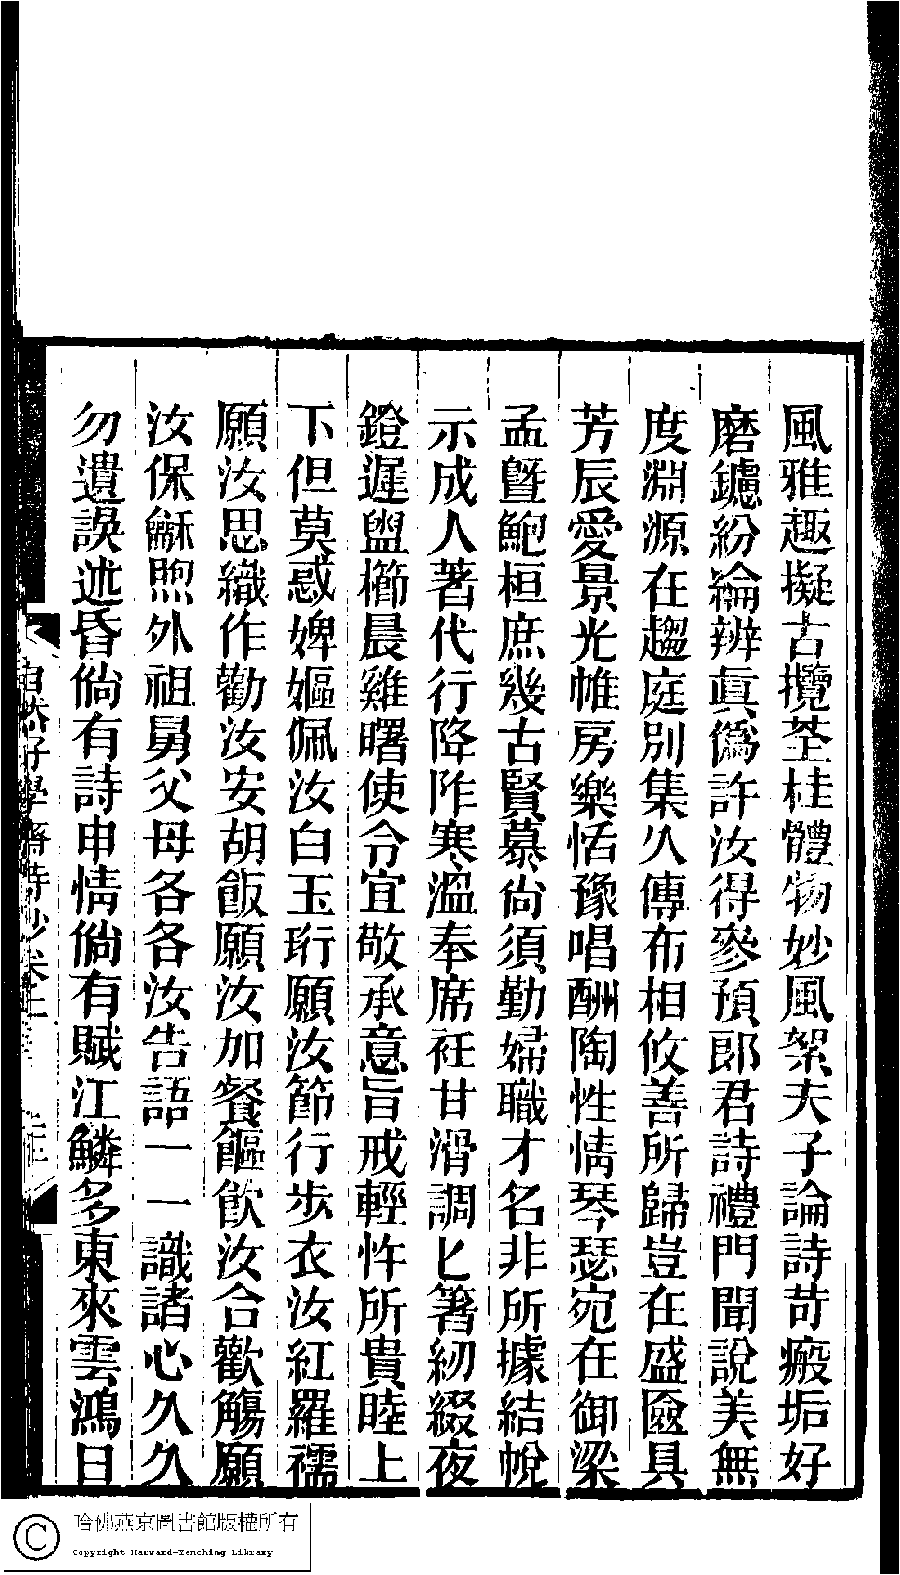 風雅趣擬古攬荃桂體物妙風絮夫子論詩苛瘢垢好
磨鑢紛綸辨眞僞許汝得參預郎君詩禮門聞說美無
度淵源在趨庭別集久傳布相攸善所歸豈在盛匳具
芳辰愛景光帷房樂恬豫唱酬陶性情琴瑟宛在御梁
孟曁鮑桓庶幾古賢慕尙須勤婦職才名非所據結帨
示成人著代行降阼寒溫奉席衽甘滑調匕箸紉綴夜
鐙遲盥櫛晨雞曙使令宜敬承意旨戒輕忤所貴睦上
下但莫惑婢嫗佩汝白玉珩願汝節行步衣汝紅羅襦
願汝思織作勸汝安胡飯願汝加餐饇飮汝合歡觴願
汝保龢煦外祖舅父母各各汝告語一一識諸心久久
勿遺誤述昏倘有詩申情倘有賦江鱗多東來雲鴻日
自然好學齋詩鈔卷上
哈佛燕京圖書館版權所有
Copyright Harvard-Yenching Library